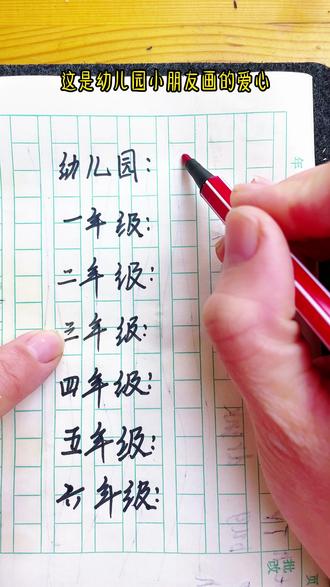 这是幼儿园小朋友画的爱心
幼儿园:
一年级:
二年级:
三年级:
四年级:
五年级:
六年级:
年
批改